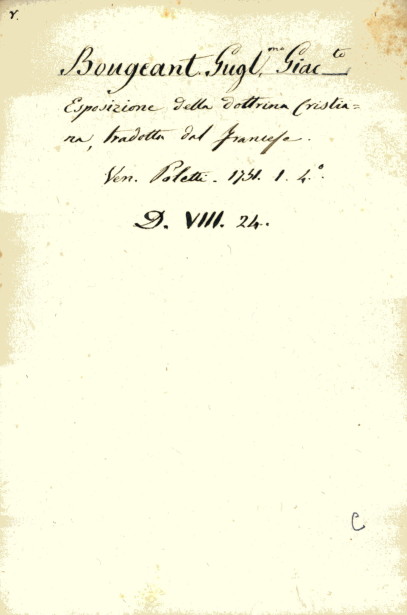 r.
Bougeant Gugl.mo Giac.to
Esposizione della dottrina Cristia=
na, tradotta dal francese.
Ven. Poletti. 1751. 1. 4.°
D. VIII. 24.
C